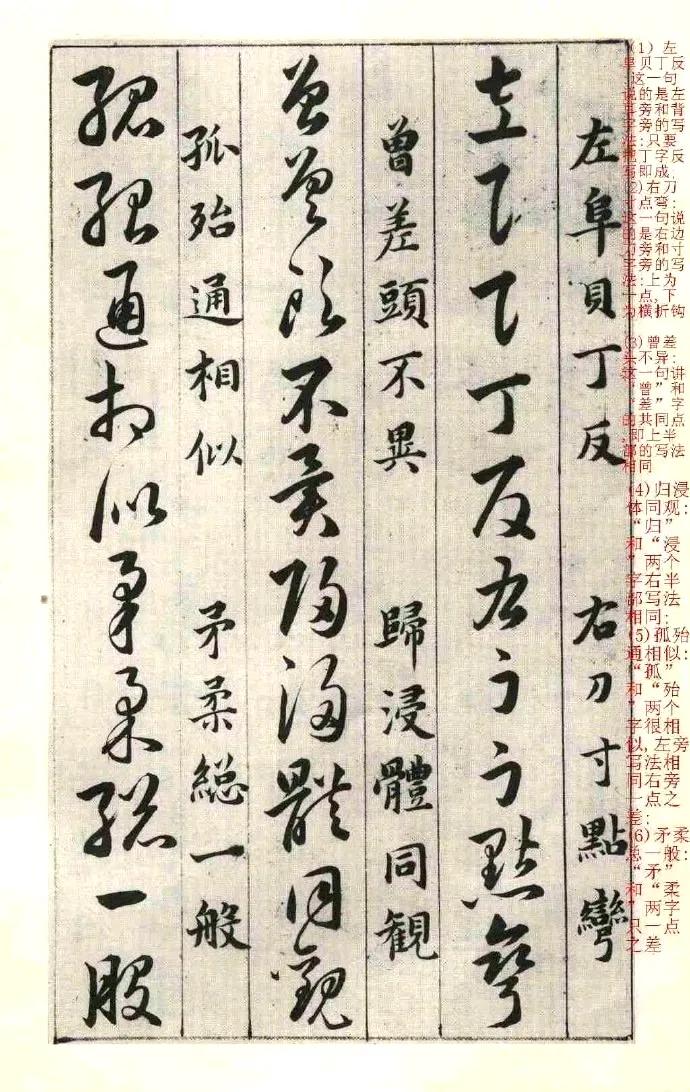 (1) 左
阜贝丁反
:这一句
说的是左
耳旁和背
字旁的写
法:只要
把丁字反
写即成;
(2)右刀
寸点弯:
这一句说
的是右边
刀旁和寸
字旁的写
法:上为
一点,下
为横折钩
(3)曾差
头不异:
这一句讲
“曾”和
“差”字
的共同点
,即上半
部的写法
相同
(4)归浸
体同观:
“归”
和“浸
”两个
字右半
部写法
相同;
(5)孤殆
通相似:
“孤”
和“殆
”两个
字很相
似,左旁
写法相
同右旁
一点之
差;
(6)矛柔
总一般:
“矛”
和“柔
”两字
只一点
之差
左阜貝丁反 右刀寸點彎
左阜貝丁反右刀寸點彎
曾差頭不異 歸浸體同観
曾差頭不異歸浸體同觀
孤殆通相似 矛柔総一般
孤殆通相似矛柔総一般